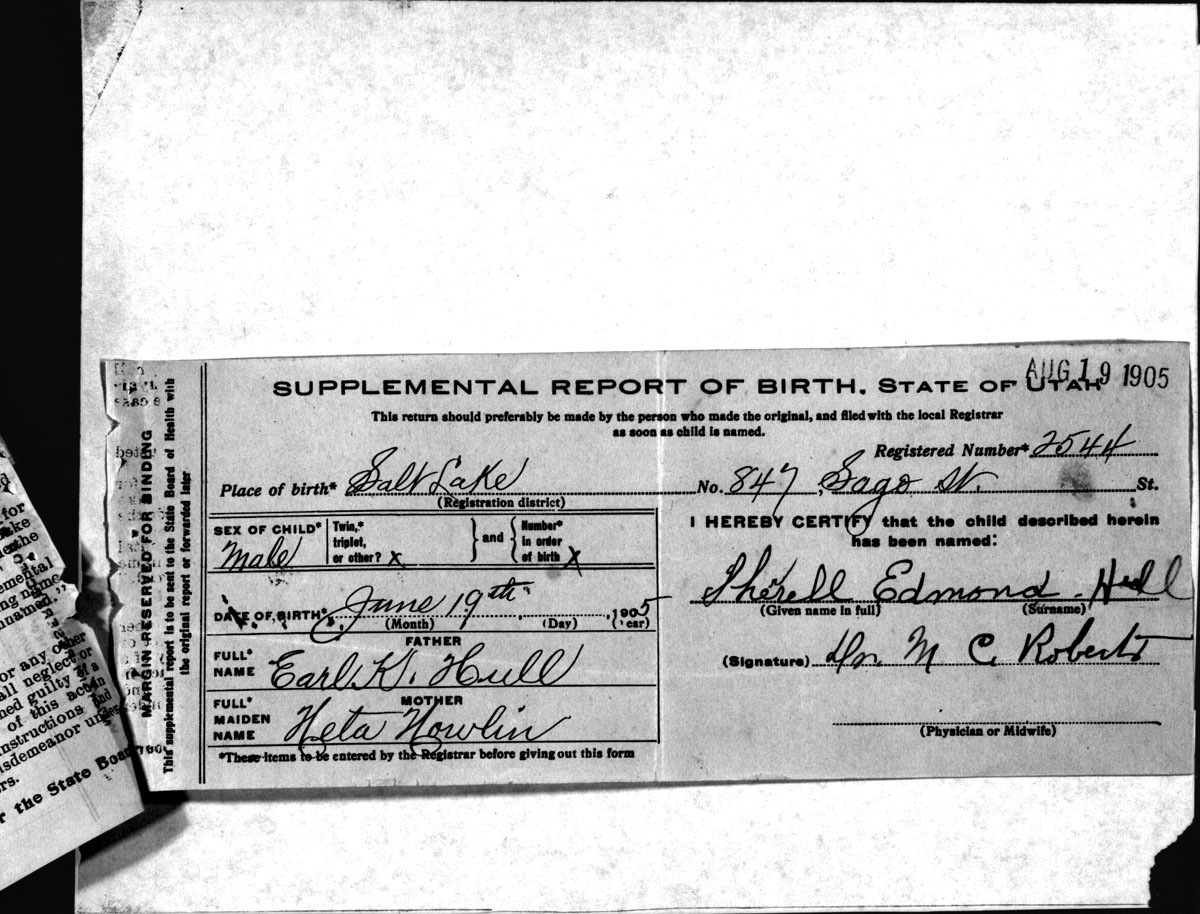 SUPPLEMENTAL REPORT OF BIRTH, STATE OF UTAH
AUG 19 1905
This return should preferably be made by the person who made the original, and filed with the local Registrar
as soon as child is named.
Registered Number* 2544
Place of birth* Salt Lake No. 847, Sago St. St.
(Registration district)
SEX OF CHILD*
Male
Twin,*
triplet,
or other? x
} and {
Number*
in order
of birth x
I HEREBY CERTIFY that the child described herein
has been named:
Sherell Edmond Hull
(Given name in full) (Surname)
DATE OF BIRTH* June 19th, 1905
(Month) (Day) (Year)
FATHER
FULL*
NAME
Earl K. Hull
(Signature) Dr. M C. Roberts
MOTHER
FULL*
MAIDEN
NAME
Heta Nowlin
(Physician or Midwife)
*These items to be entered by the Registrar before giving out this form
MARGIN RESERVED FOR BINDING
This supplemental report is to be sent to the State Board of Health with
the original report or forwarded later
for
emental
ng name
nnamed."
or any other
all neglect or
ned guilty of a
of this act in
nstructions and
isdemeanor under
rs.
r the State Board